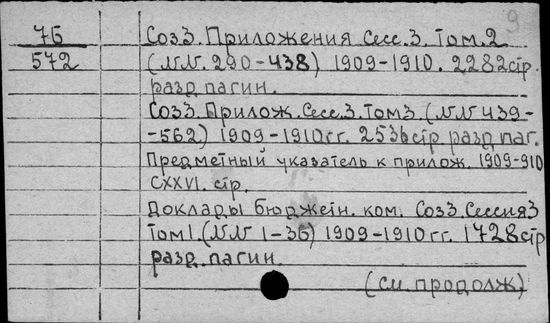 9
76
572
Соз3. Приложения Сесс. 3. Том. 2
(NN. 290-438) 1909-1910. 2282 стр.
разд. пагин.
Соз3. Прилож. Сесс. 3. Том 3. (NN 439-
-562) 1909-1910 гг. 2536 стр. разд. паг.
Предметный указатель к прилож. 1909-910
CXXVI. стр.
Доклады бюджетн. ком. Соз3. Сессия 3
Том 1. (NN 1-36) 1909-1910 гг. 1728 стр
разд. пагин.
(см. продолж)